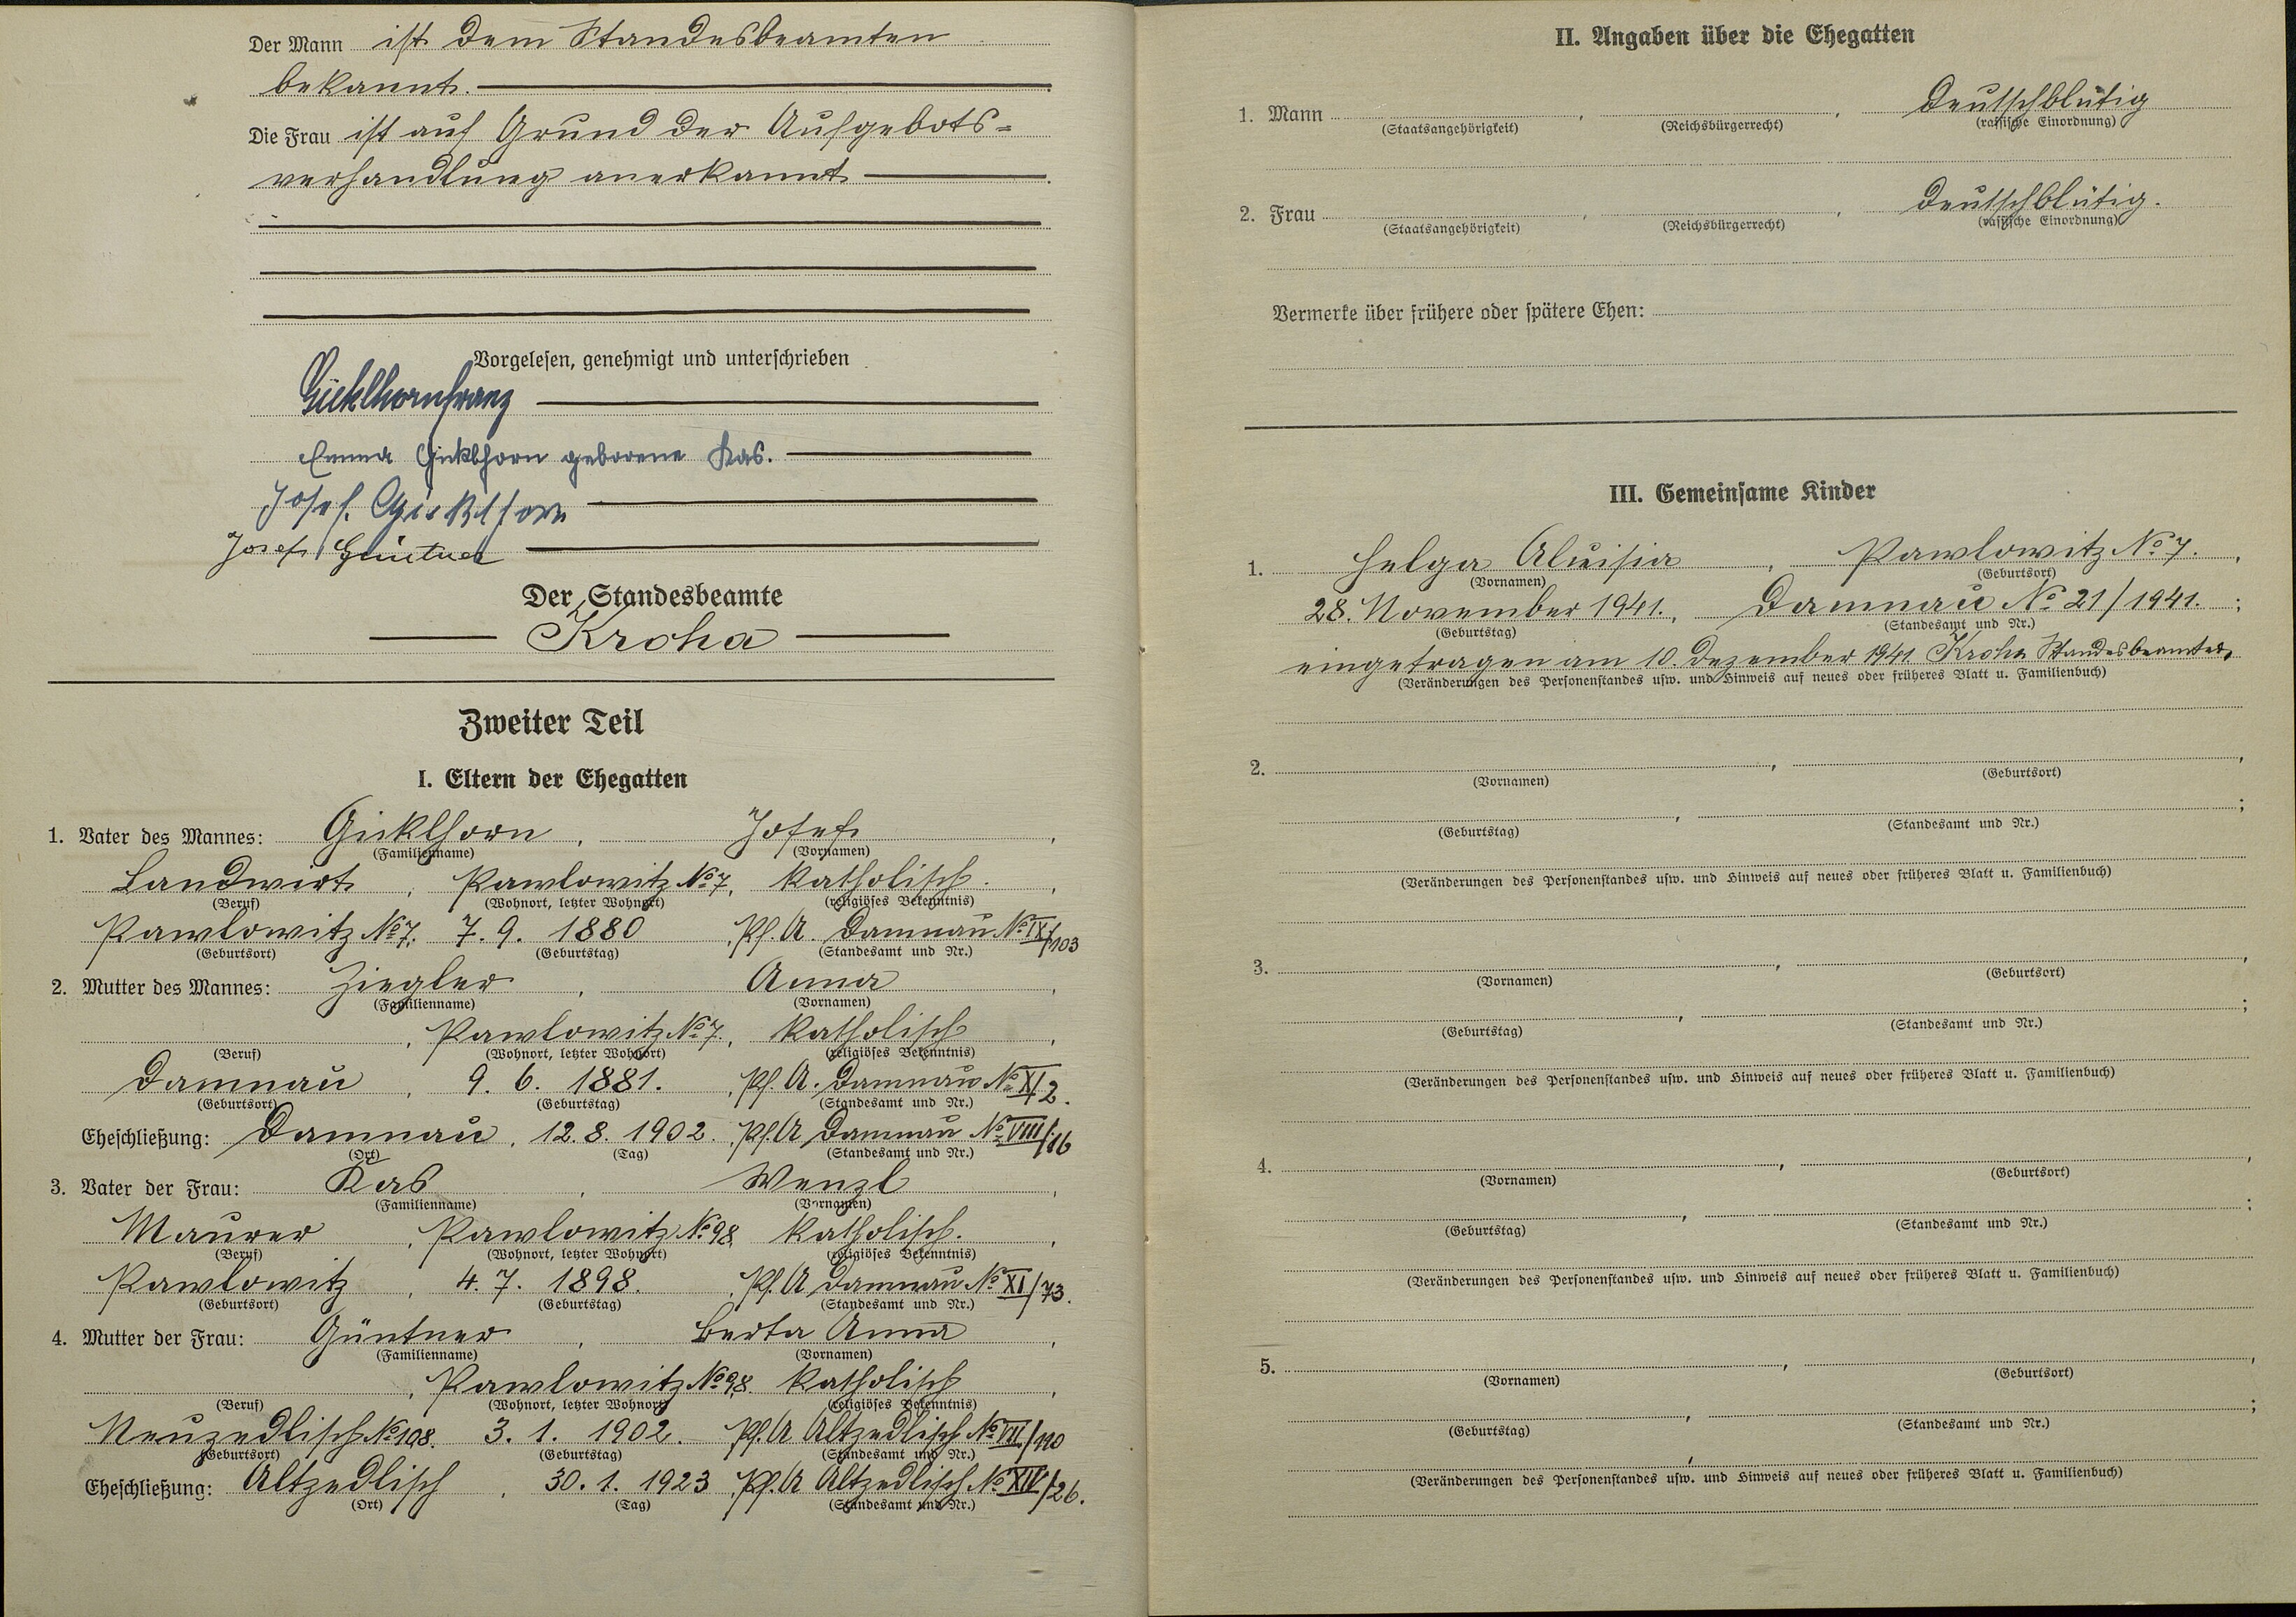 Der Mann ist dem Standesbeamten
bekannt.
Die Frau ist auf Grund der Aufgebots=
verhandlung anerkannt
Vorgelesen, genehmigt und unterschrieben
Gicklhorn Franz
Emma Gicklhorn geborene Kas.
Josef Gicklhorn
Josef Güntner
Der Standesbeamte
Kroha
Zweiter Teil
I. Eltern der Ehegatten
1. Vater des Mannes: Gicklhorn, Josef,
(Familienname) (Vornamen)
Landwirt, Pawlowitz No 7, katholisch.,
(Beruf) (Wohnort, letzter Wohnort) (religiöses Bekenntnis)
Pawlowitz No 7. 7. 9. 1880, Pf. A. Damnau No IX/103
(Geburtsort) (Geburtstag) (Standesamt und Nr.)
2. Mutter des Mannes: Ziegler, Anna,
(Familienname) (Vornamen)
, Pawlowitz No 7., katholisch,
(Beruf) (Wohnort, letzter Wohnort) (religiöses Bekenntnis)
Damnau, 9. 6. 1881., Pf. A. Damnau No XI/2.
(Geburtsort) (Geburtstag) (Standesamt und Nr.)
Eheschließung: Damnau, 12. 8. 1902. Pf. A Damnau No VIII/16
(Ort) (Tag) (Standesamt und Nr.)
3. Vater der Frau: Kas, Wenzl,
(Familienname) (Vornamen)
Maurer, Pawlowitz No 98, katholisch.,
(Beruf) (Wohnort, letzter Wohnort) (religiöses Bekenntnis)
Pawlowitz, 4. 7. 1898., Pf. A Damnau No XI/73.
(Geburtsort) (Geburtstag) (Standesamt und Nr.)
4. Mutter der Frau: Güntner, Berta Anna,
(Familienname) (Vornamen)
, Pawlowitz No 98. katholisch,
(Beruf) (Wohnort, letzter Wohnort) (religiöses Bekenntnis)
Neuzedlisch No 108. 3. 1. 1902. Pf. A Altzedlisch No VII/110
(Geburtsort) (Geburtstag) (Standesamt und Nr.)
Eheschließung: Altzedlisch, 30. 1. 1923, Pf. A Altzedlisch No XIV/26.
(Ort) (Tag) (Standesamt und Nr.)
II. Angaben über die Ehegatten
1. Mann , , Deutschblütig
(Staatsangehörigkeit) (Reichsbürgerrecht) (rassische Einordnung)
2. Frau , , Deutschblütig.
(Staatsangehörigkeit) (Reichsbürgerrecht) (rassische Einordnung)
Vermerke über frühere oder spätere Ehen:
III. Gemeinsame Kinder
1. Helga Aluisia, Pawlowitz No 7.,
(Vornamen) (Geburtsort)
28. November 1941., Damnau No 21/1941.;
(Geburtstag) (Standesamt und Nr.)
eingetragen am 10. Dezember 1941. Kroha Standesbeamter,
(Veränderungen des Personenstandes usw. und Hinweis auf neues oder früheres Blatt u. Familienbuch)
2. , ,
(Vornamen) (Geburtsort)
, ;
(Geburtstag) (Standesamt und Nr.)
(Veränderungen des Personenstandes usw. und Hinweis auf neues oder früheres Blatt u. Familienbuch)
3. , ,
(Vornamen) (Geburtsort)
, ;
(Geburtstag) (Standesamt und Nr.)
(Veränderungen des Personenstandes usw. und Hinweis auf neues oder früheres Blatt u. Familienbuch)
4. , ,
(Vornamen) (Geburtsort)
, ;
(Geburtstag) (Standesamt und Nr.)
(Veränderungen des Personenstandes usw. und Hinweis auf neues oder früheres Blatt u. Familienbuch)
5. , ,
(Vornamen) (Geburtsort)
, ;
(Geburtstag) (Standesamt und Nr.)
(Veränderungen des Personenstandes usw. und Hinweis auf neues oder früheres Blatt u. Familienbuch)